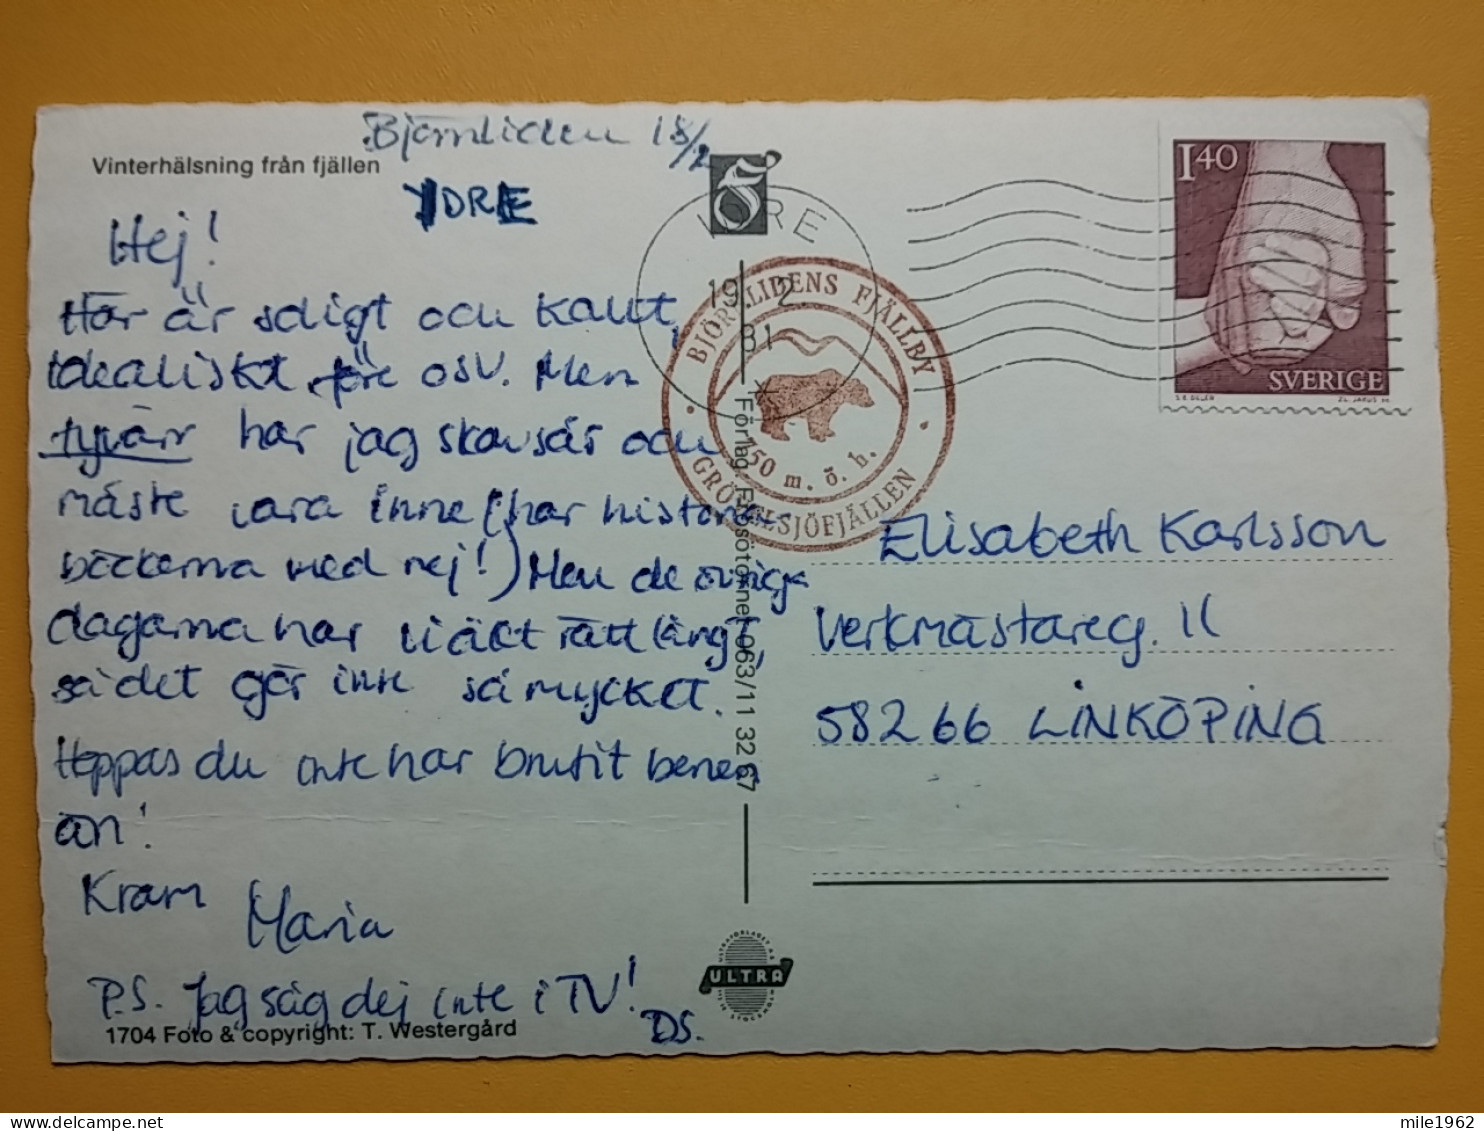 Vinterhälsning från fjällen
Björnliden 18/2
IDRE
Hej!
Här är soligt och kallt,
idealiskt före osv. Men
tyvärr har jag skavsår och
måste vara inne (har historie-
böckerna med mej!) Men de övriga
dagarna har vi åkt rätt långt,
så det gör inte så mycket.
Hoppas du inte har brutit benen
än!
Kram
Maria
P.S. Jag såg dej inte i TV!
DS.
1704 Foto & copyright: T. Westergård
IDRE
19 2
81
BJÖRNLIDENS FJÄLLBY
150 m. ö. h.
GRÖVELSJÖFJÄLLEN
063/11 32 67
ULTRA
140
SVERIGE
Elisabeth Karlsson
Verkmästareg. 11
582 66 LINKÖPING
mile1962